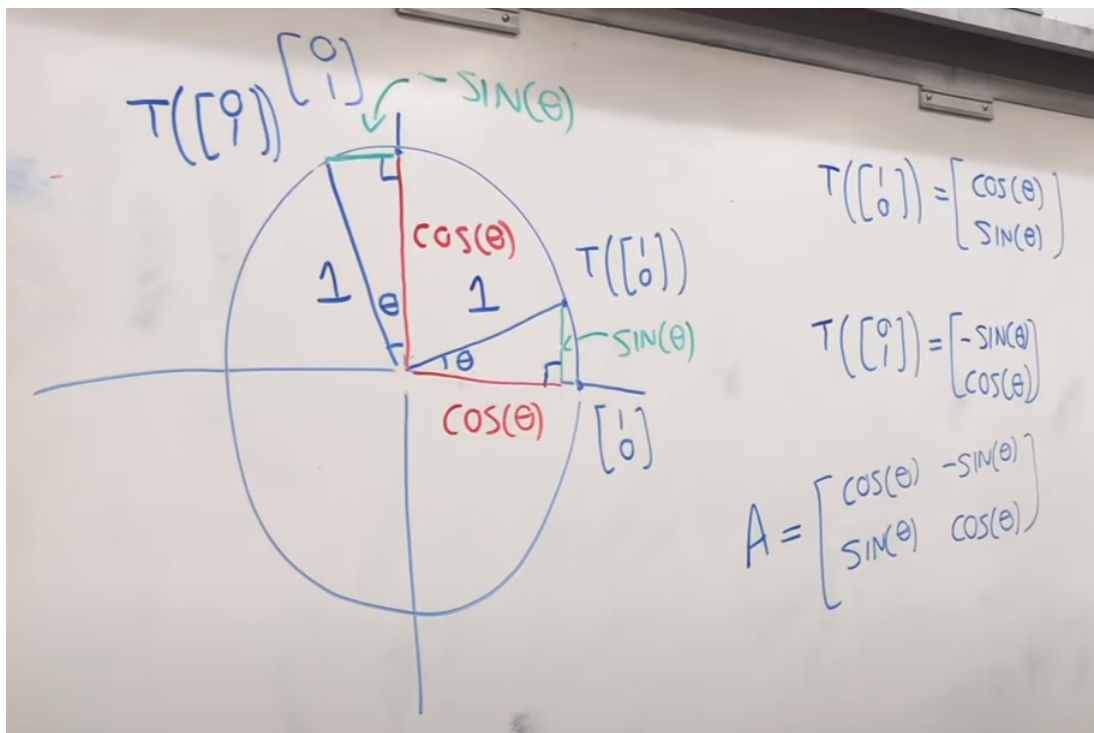 [0
1]
T([0
1])
-SIN(θ)
COS(θ)
1
θ
1
T([1
0])
θ
SIN(θ)
COS(θ)
[1
0]
T([1
0]) = [COS(θ)
SIN(θ)]
T([0
1]) = [-SIN(θ)
COS(θ)]
A = [COS(θ) -SIN(θ)
SIN(θ) COS(θ)]